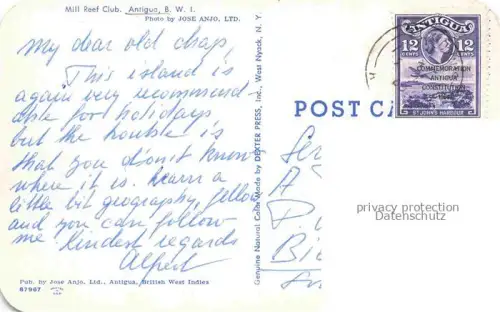 Mill Reef Club. Antigua, B. W. I.
Photo by JOSE ANJO, LTD.
My dear old chap,
This island is
again very recommend-
able for holidays
but the trouble is
that you don't know
where it is. Learn a
little bit geography, fellow
and you can follow
me kindest regards
Alfred
Pub. by Jose Anjo, Ltd., Antigua, British West Indies
67967
Genuine Natural Color Made by DEXTER PRESS, Inc., West Nyack, N. Y.
POST CA
ANTIGUA
12 12
CENTS CENTS
COMMEMORATION
ANTIGUA
CONSTITUTION
ST. JOHN'S HARBOUR
privacy protection
Datenschutz